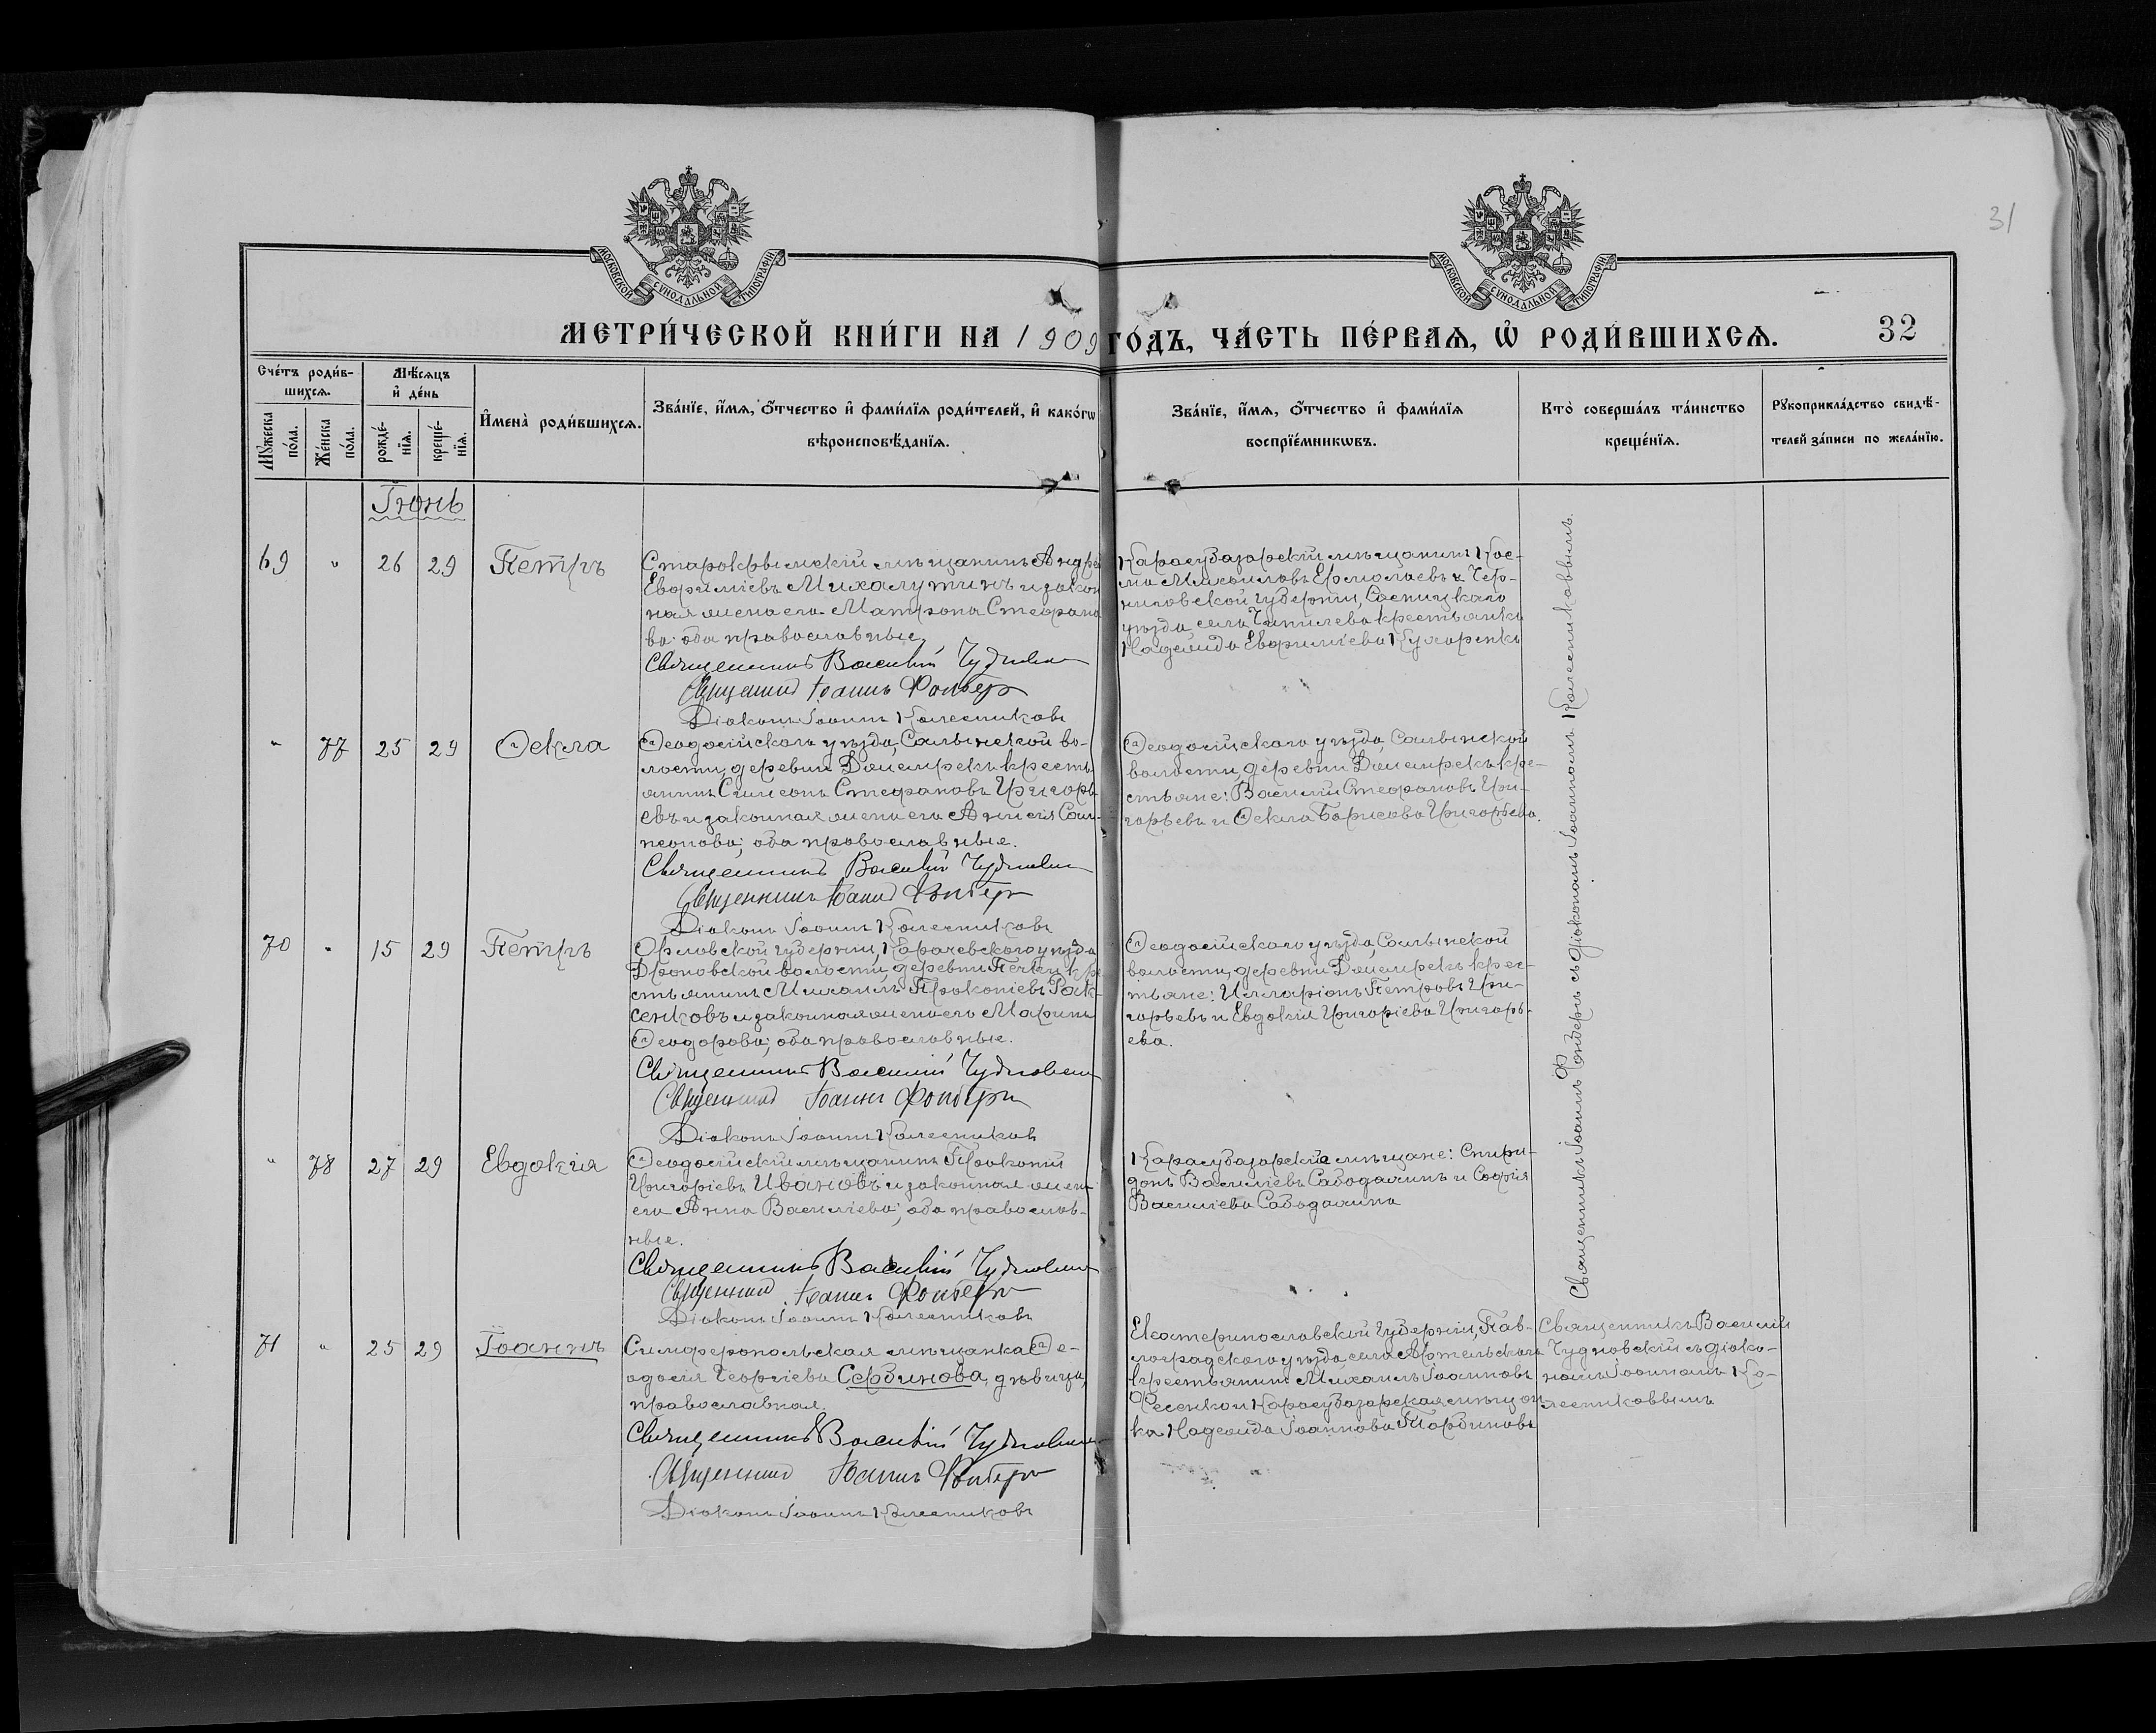 31
МОСКОВСКОЙ СѴНОДАЛЬНОЙ ТИПОГРАФІИ
МОСКОВСКОЙ СѴНОДАЛЬНОЙ ТИПОГРАФІИ
МЕТРИ́ЧЕСКОЙ КНИ́ГИ НА 1909 ГО́ДЪ, ЧА́СТЬ ПЕ́РВАѦ, Ѡ҆ РОДИ́ВШИХСѦ. 32
Сче́тъ роди́в-
шихсѧ.
Мꙋ́жеска
по́ла.
Же́нска
по́ла.
Мѣ́сѧцъ
и҆ де́нь
рожде́-
нїѧ.
креще́-
нїѧ.
И҆мена̀ роди́вшихсѧ.
Зва́нїе, и҆́мѧ, ѻ҆́тчество и҆ фами́лїѧ роди́телей, и҆ како́гѡ
вѣроисповѣ́данїѧ.
Зва́нїе, и҆́мѧ, ѻ҆́тчество и҆ фами́лїѧ
воспрїе́мникѡвъ.
Кто̀ соверша́лъ та́инство
креще́нїѧ.
Рꙋкоприкла́дство свидѣ́-
телей за́писи по жела́нїю.
Іюнь
69 " 26 29 Петръ
Старокрымскій мѣщанинъ Андрей
Евфиміевъ Михалутинъ и закон
ная жена его Матрона Стефано
ва; оба православные,
Священникъ Василій Чудновскій
Священникъ Іоаннъ Фонберъ
Діаконъ Іоаннъ Колесниковъ
Карасубазарскій мѣщанинъ Кос-
ма Ермолаевъ и Чер-
ниговской губерніи, Сосницкаго
уѣзда, села крестьянка
Надежда Евфиміева Кухаренко
Священникъ Іоаннъ Фонберъ съ діакономъ Іоанномъ Колесниковымъ.
" 77 25 29 Ѳекла
Ѳеодосійскаго уѣзда, Салынской во-
лости, деревни Джамрекъ кресть
янинъ Симеонъ Стефановъ Григорь-
евъ и законная жена его Анисія Сам-
сонова; оба православные.
Священникъ Василій Чудновскій
Священникъ Іоаннъ Фонберъ
Діаконъ Іоаннъ Колесниковъ
Ѳеодосійскаго уѣзда, Салынской
волости, деревни Джамрекъ кре-
стьяне: Василій Стефановъ Гри-
горьевъ и Ѳекла Борисова Григорьева.
70 " 15 29 Петръ
Орловской губерніи, Карачевскаго уѣзда
Дроновской волости, деревни Печки кре
стьянинъ Михаилъ Прокопіевъ Рак-
сенковъ и законная жена его Марина
Ѳеодорова; оба православные.
Священникъ Василій Чудновскій
Священникъ Іоаннъ Фонберъ
Діаконъ Іоаннъ Колесниковъ
Ѳеодосійскаго уѣзда, Салынской
волости, деревни Джамрекъ крес-
тьяне: Илларіонъ Петровъ Гри-
горьевъ и Евдокія Григоріева Григорь-
ева.
" 78 27 29 Евдокія
Ѳеодосійскій мѣщанинъ Прокопій
Григоріевъ Ивановъ и законная жена
его Анна Василіева; оба православ-
ные.
Священникъ Василій Чудновскій
Священникъ Іоаннъ Фонберъ
Діаконъ Іоаннъ Колесниковъ
Карасубазарскіе мѣщане: Спири-
донъ Василіевъ Сабодашинъ и Софія
Василіева Сабодашина
71 " 25 29 Іоаннъ
Симферопольская мѣщанка Ѳе-
одосія Георгіева Сербинова, дѣвица,
православная.
Священникъ Василій Чудновскій
Священникъ Іоаннъ Фонберъ
Діаконъ Іоаннъ Колесниковъ
Екатеринославской губерніи, Пав-
лоградскаго уѣзда, села Артельскаго
крестьянинъ Михаилъ Іоанновъ
Фесенко и Карасубазарская мѣщан
ка Надежда Іоаннова
Священникъ Василій
Чудновскій съ діако-
номъ Іоанномъ Ко-
лесниковымъ